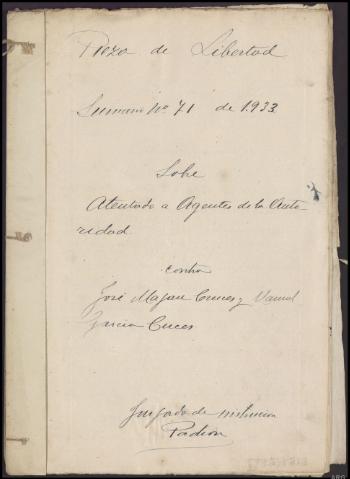 Pieza de Libertad
Sumario nº 71 de 1.933
Sobre
Atentado a Agentes de la Auto-
ridad
contra
José Magan Cunces y
Garcia Cuces
Juzgado de instrucción
Padron
ARG